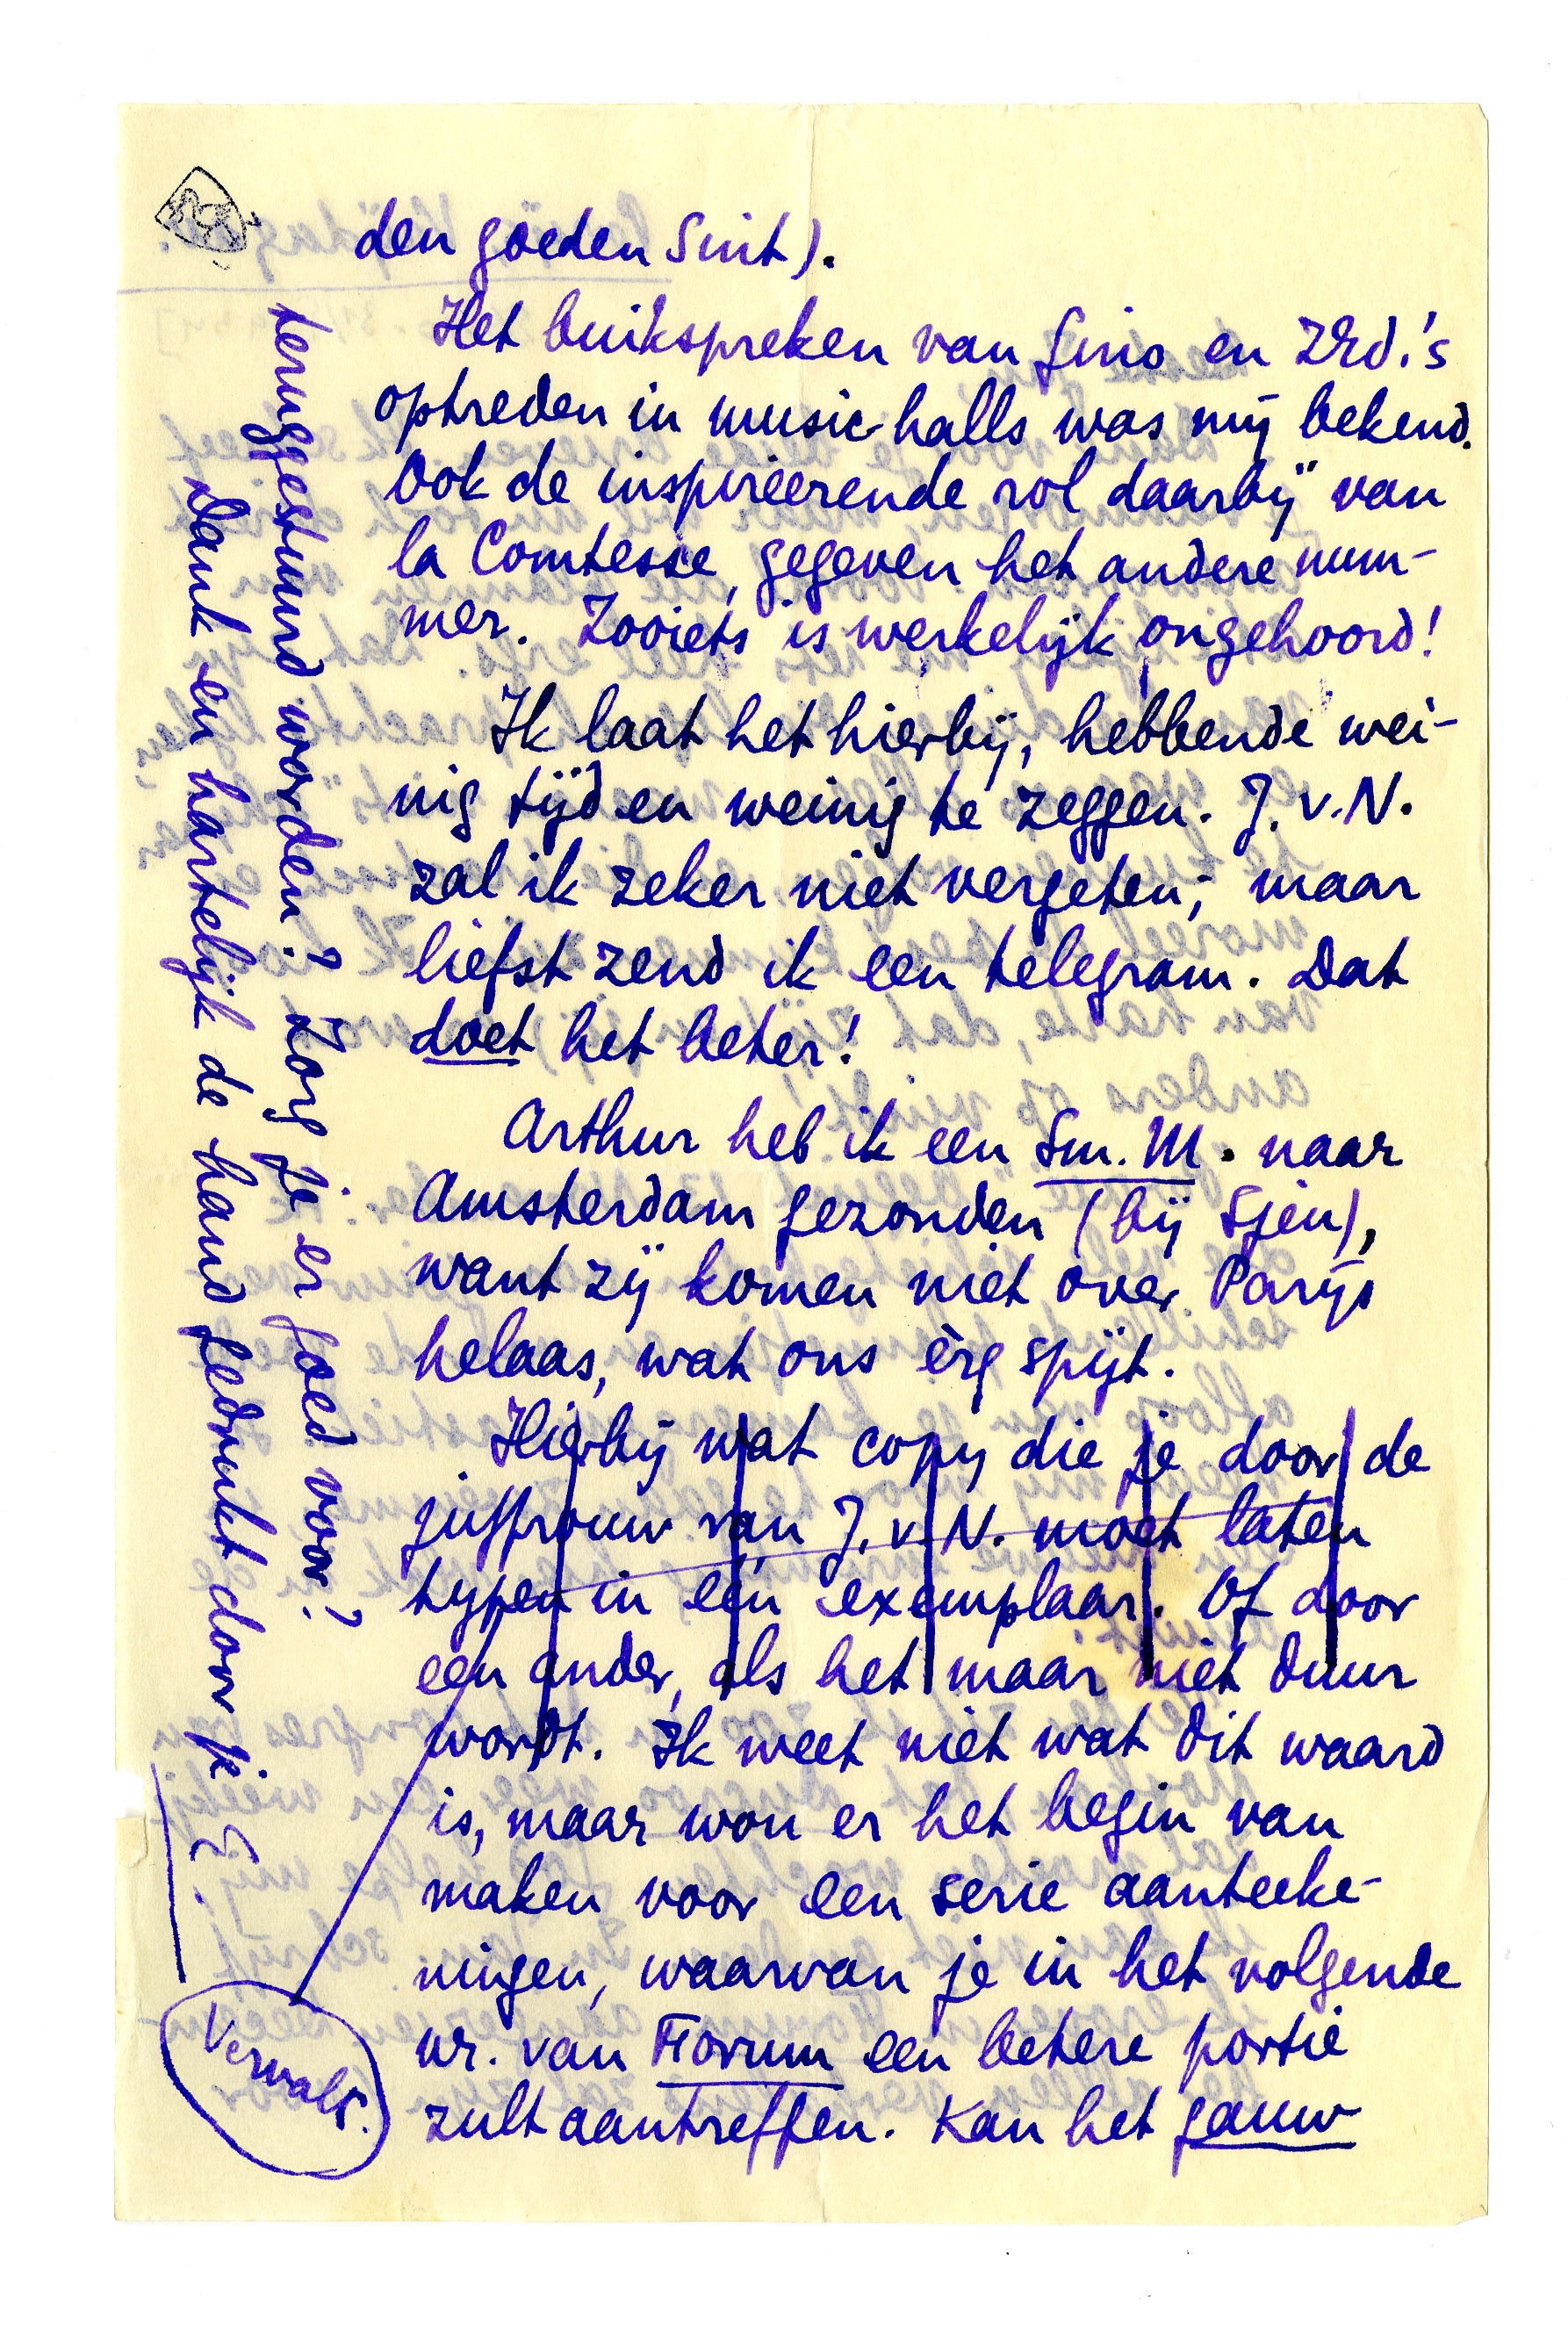 den goeden Sint).
Het buikspreken van Gino en ZEd.'s
optreden in music-halls was mij bekend.
Ook de inspireerende rol daarbij van
la Comtesse, gegeven het andere num-
mer. Zooiets is werkelijk ongehoord!
Ik laat het hierbij, hebbende wei-
nig tijd en weinig te zeggen. J. v. N.
zal ik zeker niet vergeten; maar
liefst zend ik een telegram. Dat
doet het beter!
Arthur heb ik een Sm. M. naar
Amsterdam gezonden (bij Sjeu),
want zij komen niet over Parijs
helaas, wat ons èrg spijt.
Hierbij wat copy die je door de
juffrouw van J. v. N. moet laten
typen in één exemplaar. Of door
een ander, als het maar niet duur
wordt. Ik weet niet wat dit waard
is, maar wou er het begin van
maken voor een serie aanteeke-
ningen, waarvan je in het volgende
nr. van Forum een betere portie
zult aantreffen. Kan het gauw
teruggestuurd worden? Zorg je er goed voor?
Dank en hartelijk de hand gedrukt door je E.
Vervalt.